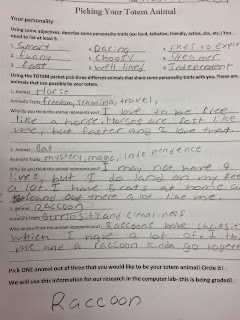 Picking Your Totem Animal
Your personality
Using some adjectives, describe some personality traits (ex: loud, talkative, friendly, active, shy, etc.) You
need to list at least 9.
1. Smart 2. Daring 3. likes to explo
4. funny 5. choosy 6. Dreamer
7. fast 8. well liked 9. Independent
Using the TOTEM packet pick three different animals that share some personality traits with you. These are
animals that can possibly be your totem.
1. Animal: Horse
Animal's Traits: freedom, stamina, travel,
Why do you think this animal represents you? I love to be free
like a horse. Horses are fast like
me, but faster and I love that.
2. Animal: Cat
Animal's Traits: mystery, magic, independence
Why do you think this animal represents you? I may not have 9
lives, but I do land on my feet
a lot. I have 5 cats at home and
out there a lot like me.
3. Animal: Raccoon
Animal's Traits: Curiosity and cleanliness
Why do you think this animal represents you? Raccoons have curiosity
which I have a lot of. I th
me and a raccoon kinda go together
Pick ONE animal out of three that you would like to be your totem animal! Circle it!
We will use this information for our research in the computer lab- this is being graded!
Raccoon